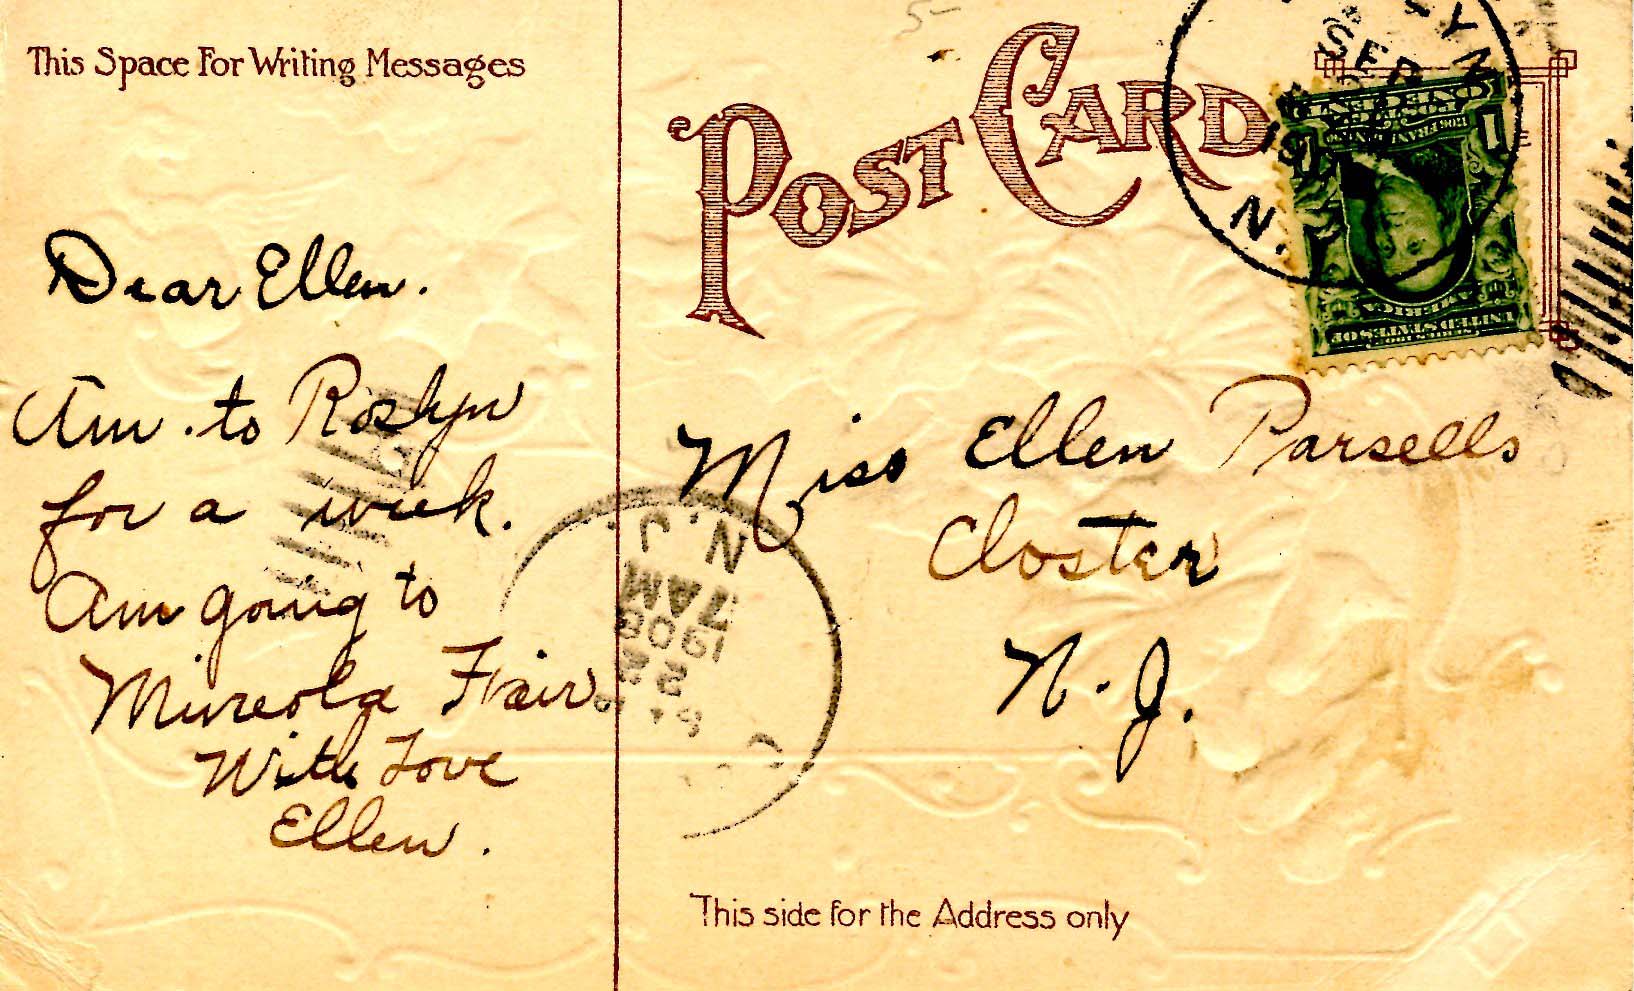 This Space For Writing Messages
POST CARD
Dear Ellen.
Am to Roslyn
for a week.
Am going to
Mineola Fair
With Love
Ellen.
Miss Ellen Parsells
Closter
N. J.
This side for the Address only
YN
SEP
N.
ONE CENT
1
FRANKLIN
UNITED STATES OF
AMERICA
N.J.
7 AM
1908
22